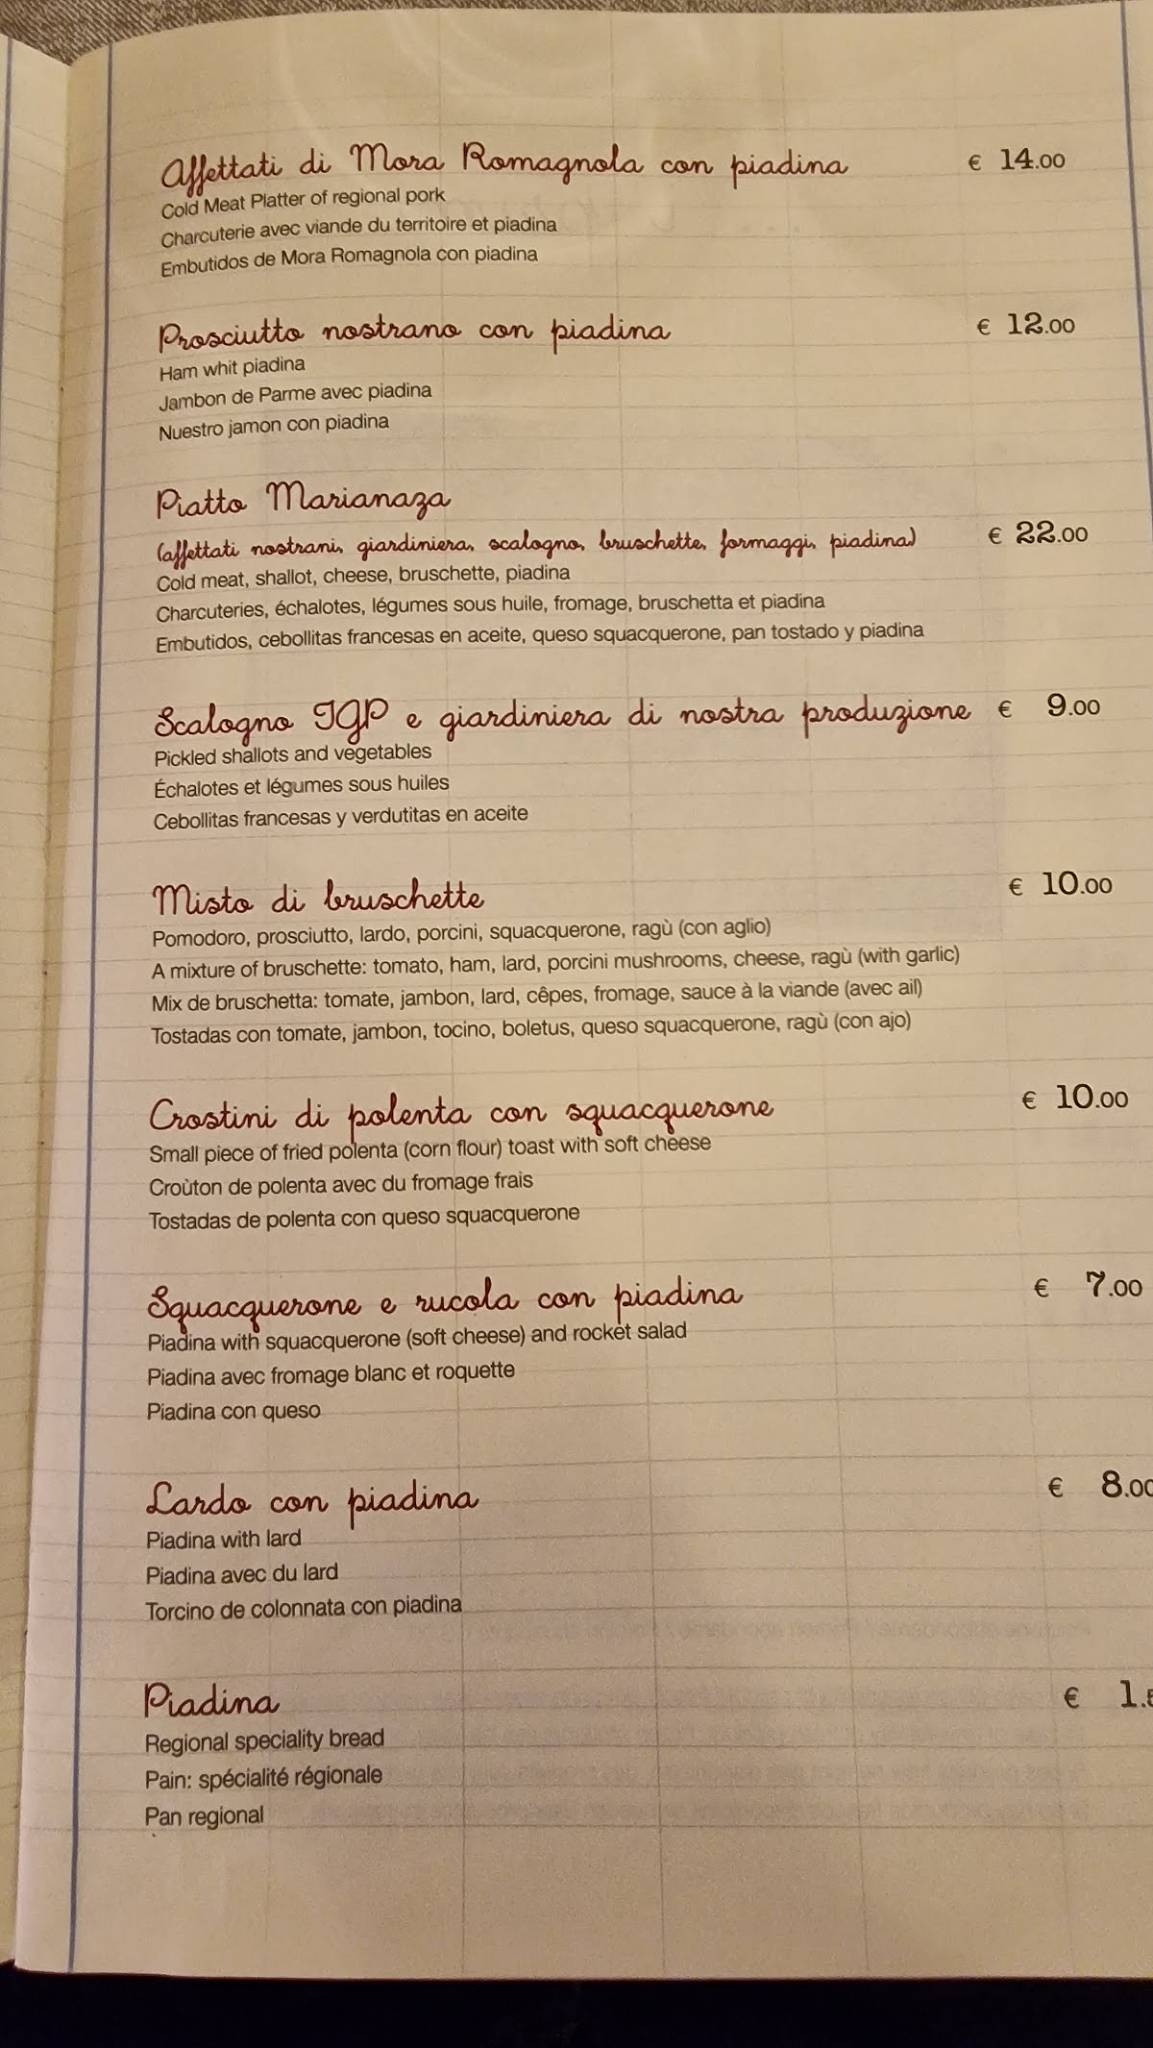 Affettati di Mora Romagnola con piadina € 14.00
Cold Meat Platter of regional pork
Charcuterie avec viande du territoire et piadina
Embutidos de Mora Romagnola con piadina
Prosciutto nostrano con piadina € 12.00
Ham whit piadina
Jambon de Parme avec piadina
Nuestro jamon con piadina
Piatto Marianaza
(affettati nostrani, giardiniera, scalogno, bruschette, formaggi, piadina) € 22.00
Cold meat, shallot, cheese, bruschette, piadina
Charcuteries, échalotes, légumes sous huile, fromage, bruschetta et piadina
Embutidos, cebollitas francesas en aceite, queso squacquerone, pan tostado y piadina
Scalogno IGP e giardiniera di nostra produzione € 9.00
Pickled shallots and vegetables
Échalotes et légumes sous huiles
Cebollitas francesas y verdutitas en aceite
Misto di bruschette € 10.00
Pomodoro, prosciutto, lardo, porcini, squacquerone, ragù (con aglio)
A mixture of bruschette: tomato, ham, lard, porcini mushrooms, cheese, ragù (with garlic)
Mix de bruschetta: tomate, jambon, lard, cêpes, fromage, sauce à la viande (avec ail)
Tostadas con tomate, jambon, tocino, boletus, queso squacquerone, ragù (con ajo)
Crostini di polenta con squacquerone € 10.00
Small piece of fried polenta (corn flour) toast with soft cheese
Croùton de polenta avec du fromage frais
Tostadas de polenta con queso squacquerone
Squacquerone e rucola con piadina € 7.00
Piadina with squacquerone (soft cheese) and rocket salad
Piadina avec fromage blanc et roquette
Piadina con queso
Lardo con piadina € 8.00
Piadina with lard
Piadina avec du lard
Torcino de colonnata con piadina
Piadina € 1.
Regional speciality bread
Pain: spécialité régionale
Pan regional